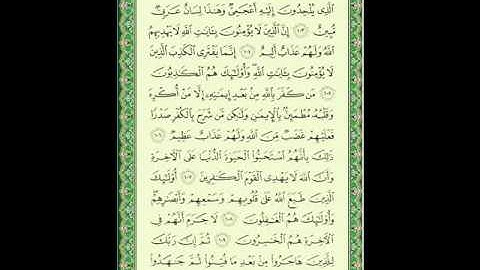 ٱلَّذِى يُلْحِدُونَ إِلَيْهِ أَعْجَمِىٌّ وَهَـٰذَا لِسَانٌ عَرَبِىٌّ
مُّبِينٌ ١٠٣ إِنَّ ٱلَّذِينَ لَا يُؤْمِنُونَ بِـَٔايَـٰتِ ٱللَّهِ لَا يَهْدِيهِمُ
ٱللَّهُ وَلَهُمْ عَذَابٌ أَلِيمٌ ١٠٤ إِنَّمَا يَفْتَرِى ٱلْكَذِبَ ٱلَّذِينَ
لَا يُؤْمِنُونَ بِـَٔايَـٰتِ ٱللَّهِ وَأُو۟لَـٰٓئِكَ هُمُ ٱلْكَـٰذِبُونَ
١٠٥ مَن كَفَرَ بِٱللَّهِ مِنۢ بَعْدِ إِيمَـٰنِهِۦٓ إِلَّا مَنْ أُكْرِهَ
وَقَلْبُهُۥ مُطْمَئِنٌّۢ بِٱلْإِيمَـٰنِ وَلَـٰكِن مَّن شَرَحَ بِٱلْكُفْرِ صَدْرًا
فَعَلَيْهِمْ غَضَبٌ مِّنَ ٱللَّهِ وَلَهُمْ عَذَابٌ عَظِيمٌ ١٠٦
ذَٰلِكَ بِأَنَّهُمُ ٱسْتَحَبُّوا۟ ٱلْحَيَوٰةَ ٱلدُّنْيَا عَلَى ٱلْـَٔاخِرَةِ
وَأَنَّ ٱللَّهَ لَا يَهْدِى ٱلْقَوْمَ ٱلْكَـٰفِرِينَ ١٠٧ أُو۟لَـٰٓئِكَ
ٱلَّذِينَ طَبَعَ ٱللَّهُ عَلَىٰ قُلُوبِهِمْ وَسَمْعِهِمْ وَأَبْصَـٰرِهِمْ
وَأُو۟لَـٰٓئِكَ هُمُ ٱلْغَـٰفِلُونَ ١٠٨ لَا جَرَمَ أَنَّهُمْ فِى
ٱلْـَٔاخِرَةِ هُمُ ٱلْخَـٰسِرُونَ ١٠٩ ثُمَّ إِنَّ رَبَّكَ
لِلَّذِينَ هَاجَرُوا۟ مِنۢ بَعْدِ مَا فُتِنُوا۟ ثُمَّ جَـٰهَدُوا۟